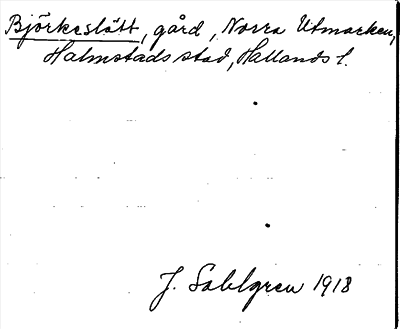 Björkeslätt, gård, Norra Utmarken,
Halmstads stad, Hallands l.
J. Sahlgren 1918